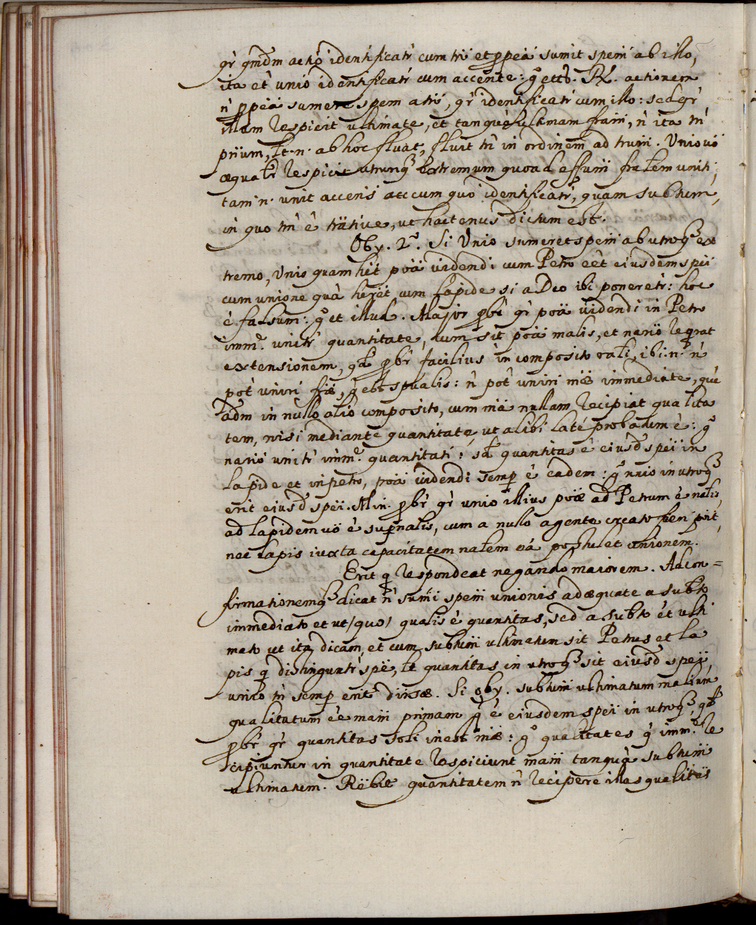 qr̄ qm̄dm actio identificatr̄ cum tr̄i et ꝓpea sumit spēm ab illo,
ita et unio identificatr̄ cum accēnte: gͦ ettˢ. Rͥ. actionem
n̄ ꝓpea sumere spēm a tr̄i, qr̄ identificatr̄ cum illo: sed qr̄
illum respicit ultimate, et tanquā ultimam, n̄ ita tr̄i
prium, lt̄. n. ab hoc fluat, fluit tn̄ in ordinem ad trum. Unio vō
æqualr̄ respicit utrunq; extremum quoad effum frālem uniti;
tam n. unit accens ac cum quo identificatr̄, quam subtum,
in quo tn̄ ē trātive, ut hactenus dictum est.
Obȷ. 2ͦ. Si Unio sumeret spēm ab utroq; ex
tremo, Unio quam hēt poā videndi cum Petro eēt eiusdem spēi
cum unione quā herēt cum lapide si a Deo ibi poneretr̄: hoc
ē falsum: gͦ et illud. Major pbr̄ qr̄ poā videndi in Petro
immͤ. unitr̄ quantitate, cum sit poā malis, et nariō reqrat
extensionem, qd̄ pbr̄ facilius in composito rāli, ibi. n. n̄
pot̄ uniri fræ, q̄ est spualis: n̄ pot̄ uniri mæ immediate, que
adm in nullo alio composito, cum mā nullam recipiat qualita
tem, nisi mediante quantitate, ut alibi late probatum ē: gͦ
nariō unitr̄ immͤ. quantitati: sd̄ quantitas ē eiusd̄ spēi in
lapide et in petro, poā videndi semp̄ ē eadem: gͦ unio in utroq;
erit eiusd̄ spēi. Min. pbr̄ qr̄ unio illius poæ ad Petrum ē nālis,
ad lapidem vō ē supnālis, cum a nullo agente creato fieri pōt
nec lapis iuxta capacitatem nālem eā postulet unionem.
Erit q̄ respondeat negando maiorem. Ad con=
firmationemq; dicat n̄ sumi spēm unionis adæquate a subto
immediato et ut (quo) qualis ē quantitas, sed a subto ēt ulti
mato ut ita dicam, et cum subtum ultimatum sit Petrus et la
pis q̄ distinguntr̄ spē, lt̄ quantitas in utroq; sit eiusd̄ spēi,
unio tn̄ semp̄ erit divsæ. Si obȷ. subtum ultimatum malium
qualitatum eē mam primam q̄ ē eiusdem spēi in utroq; qd̄
pbr̄ qr̄ quantitas soli inest mæ: gͦ qualitates q̄ immͤ. re
cipiuntur in quantitate respiciunt mam tanquā subtum
ultimatum. Rēbit quantitatem n̄ recipere illas qualites